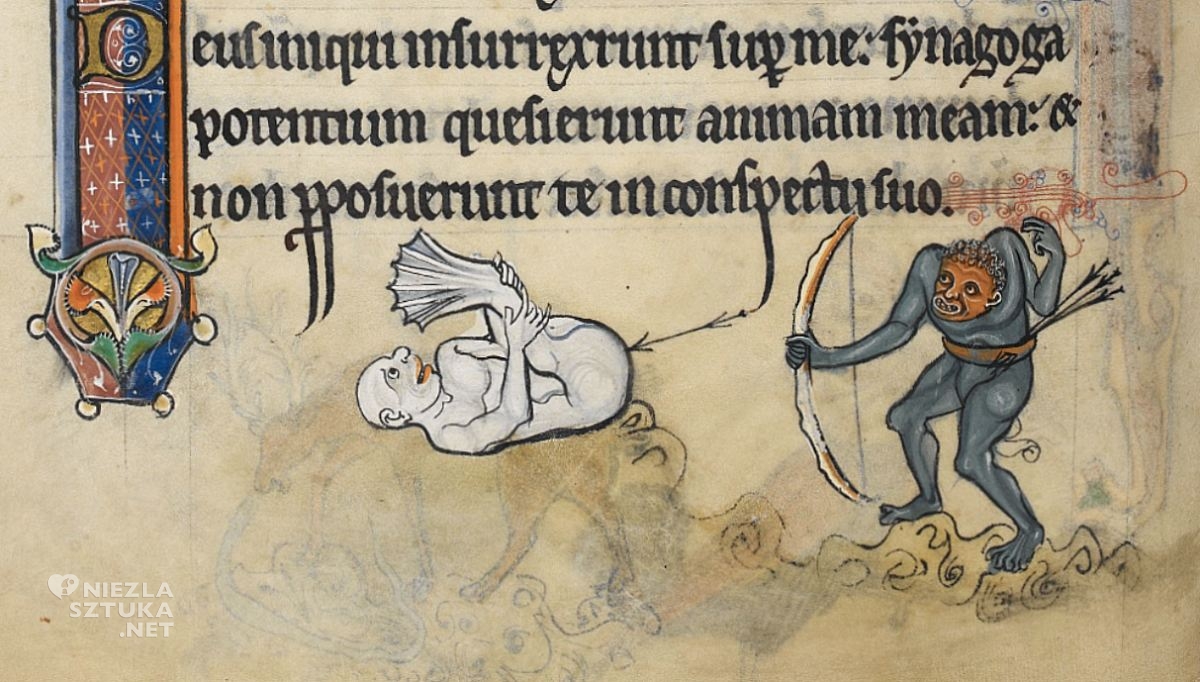 Deus iniqui insurrexrunt sup me: synagoga
potentium quesierunt animam meam: &
non pposuerunt te in conspectu suo.
NIEZLA
SZTUKA
.NET